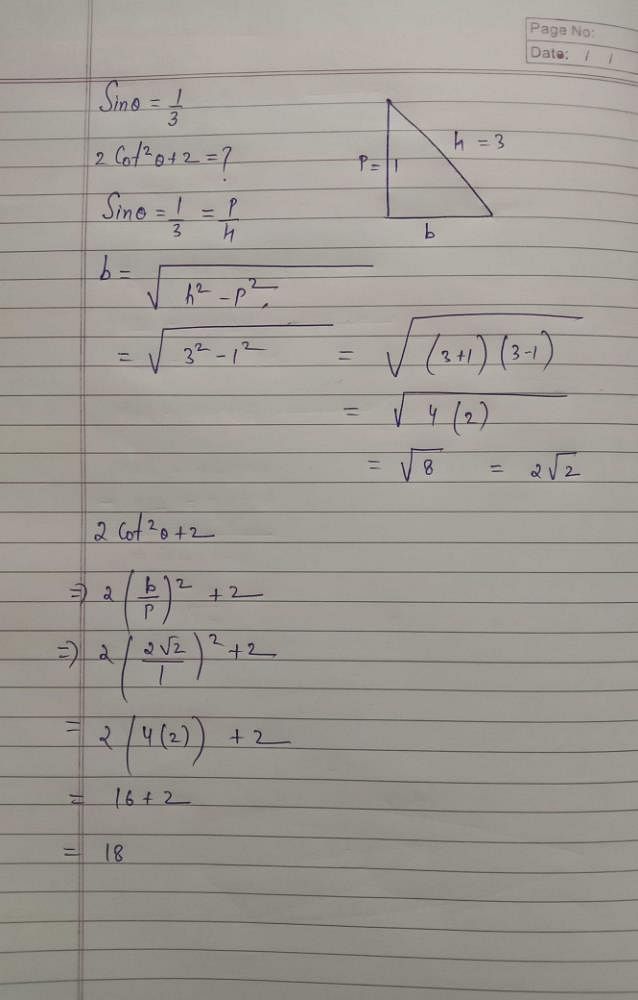 Page No:
Date: / /
Sinθ = 1/3
2 Cot²θ + 2 = ?
P = 1
h = 3
b
Sinθ = 1/3 = P/h
b = √(h² - P²)
= √(3² - 1²) = √((3+1)(3-1))
= √(4(2))
= √8 = 2√2
2 Cot²θ + 2
⇒ 2(b/P)² + 2
⇒ 2(2√2/1)² + 2
= 2(4(2)) + 2
= 16 + 2
= 18